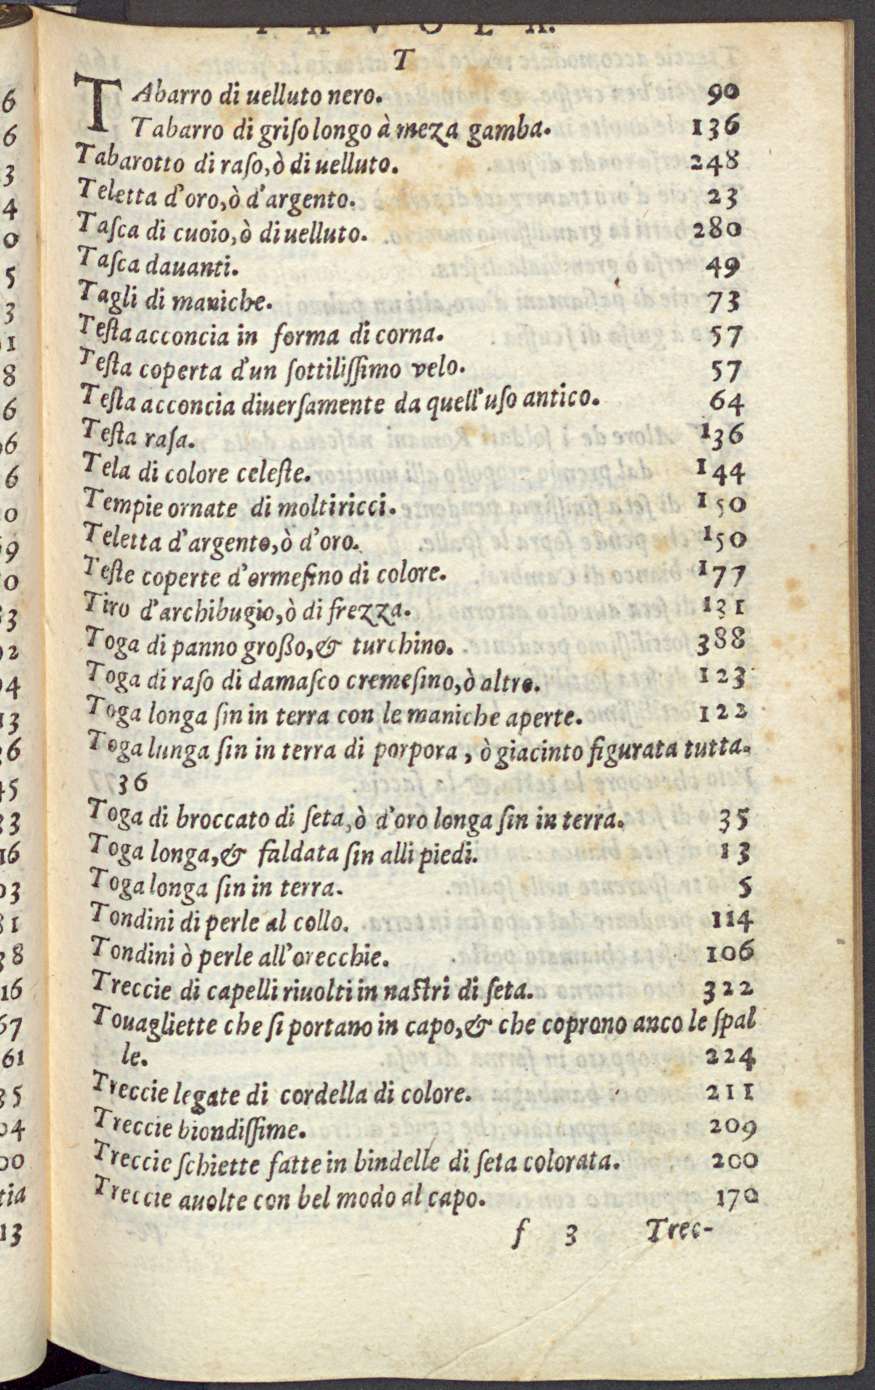 TAVOLA.
T
TAbarro di uelluto nero. 90
Tabarro di griſo longo à meza gamba. 136
Tabarotto di raſo, ò di uelluto. 248
Teletta d'oro, ò d'argento. 23
Taſca di cuoio, ò di uelluto. 280
Taſca dauanti. 49
Tagli di maniche. 73
Teſta acconcia in forma di corna. 57
Teſta coperta d'un ſottiliſſimo velo. 57
Teſta acconcia diuerſamente da quell'uſo antico. 64
Teſta raſa. 136
Tela di colore celeſte. 144
Tempie ornate di molti ricci. 150
Teletta d'argento, ò d'oro. 150
Teſte coperte d'ormeſino di colore. 177
Tiro d'archibugio, ò di frezza. 131
Toga di panno großo, & turchino. 388
Toga di raſo di damaſco cremeſino, ò altro. 123
Toga longa ſin in terra con le maniche aperte. 122
Toga lunga ſin in terra di porpora, ò giacinto figurata tutta.
36
Toga di broccato di ſeta, ò d'oro longa ſin in terra. 35
Toga longa, & faldata ſin alli piedi. 13
Toga longa ſin in terra. 5
Tondini di perle al collo. 114
Tondini ò perle all'orecchie. 106
Treccie di capelli riuolti in naſtri di ſeta. 322
Touagliette che ſi portano in capo, & che coprono anco le ſpal
le. 224
Treccie legate di cordella di colore. 211
Treccie biondiſſime. 209
Treccie ſchiette fatte in bindelle di ſeta colorata. 200
Treccie auolte con bel modo al capo. 170
f 3 Trec-